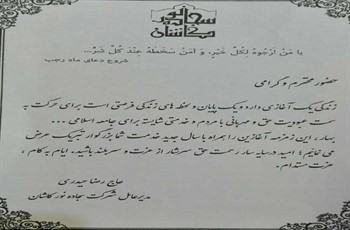 سجاده نور
کاشان
یا مَنْ اَرْجُوهُ لِکُلِّ خَیْرٍ، وَ آمَنُ سَخَطَهُ عِنْدَ کُلِّ شَرٍّ...
شروع دعای ماه رجب
حضور محترم و گرامی
زندگی یک آغازی دارد و یک پایان و لحظه های زندگی فرصتی است برای حرکت به
سمت عبودیت حق و مهربانی با مردم و خدمتی شایسته برای جامعه اسلامی ...
بهار، این زمزمه آغازین را همراه با سال جدید خدمت شما بزرگوار تبریک عرض
می نمایم؛ امید در سایه سار رحمت حق سرشار از عزت و سربلند باشید. ایام به کام،
عزت مستدام.
حاج رضا حیدری
مدیرعامل شرکت سجاده نور کاشان